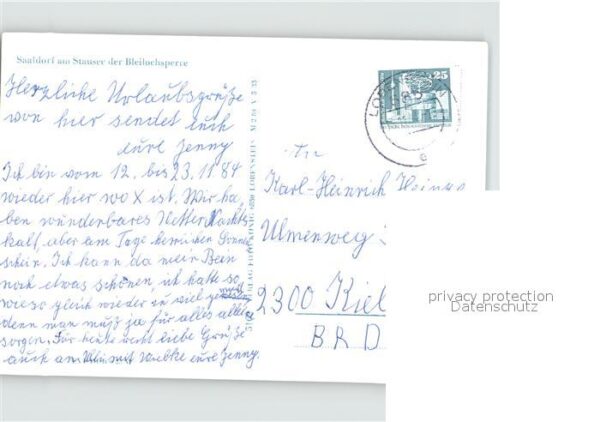 Saaldorf am Stausee der Bleilochsperre
Herzliche Urlaubsgrüße
von hier sendet euch
eure Jenny
Ich bin vom 12. bis 23.11 84
wieder hier wo X ist. Wir ha,
ben wunderbares Wetter Nachts
kalt, aber am Tage herrlichen Sonnen
schein. Ich kann da mein Bein
noch etwas schönen, ich hatte so
wieso gleich wieder zu viel
denn man muß ja für alles allei
sorgen. Für heute recht liebe Grüße
auch am Wiebke eure Jenny.
An
Karl-Heinrich
Ulmenweg
2300 Kiel
BRD
25
privacy protection
Datenschutz